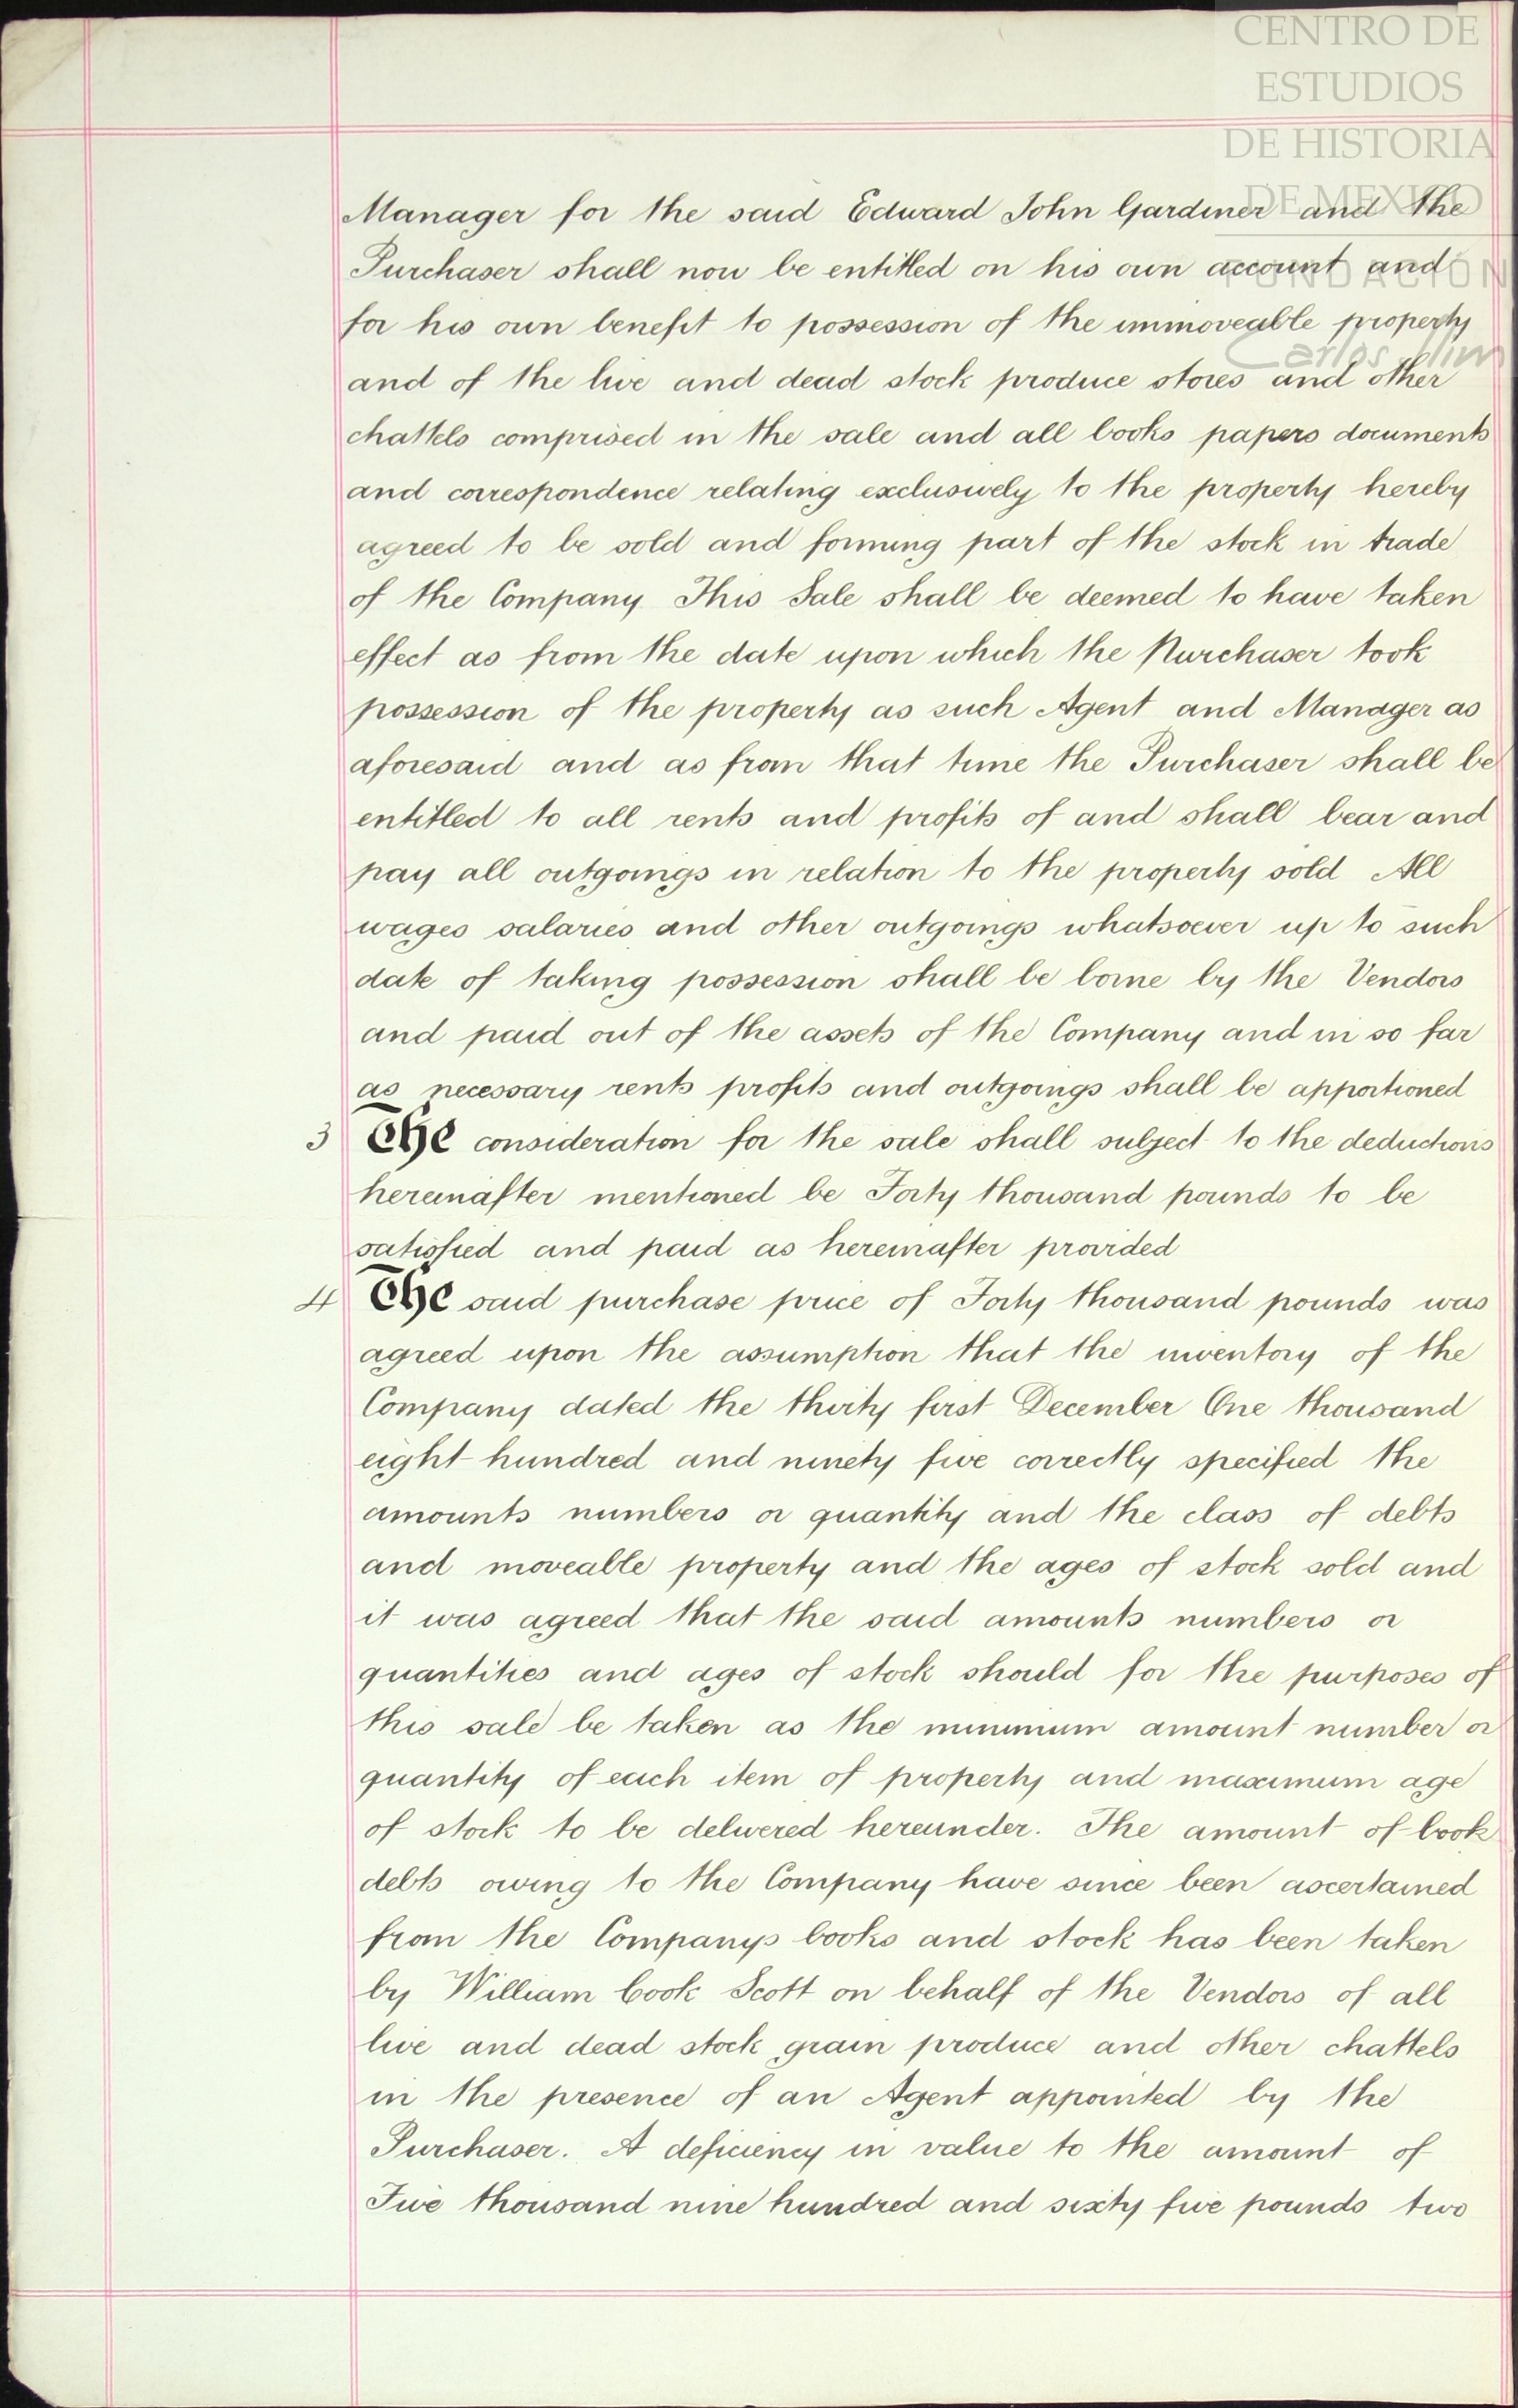 CENTRO DE
ESTUDIOS
DE HISTORIA
DE MEXICO
FUNDACIÓN
Carlos Slim
Manager for the said Edward John Gardiner and the
Purchaser shall now be entitled on his own account and
for his own benefit to possession of the immoveable property
and of the live and dead stock produce stores and other
chattels comprised in the sale and all books papers documents
and correspondence relating exclusively to the property hereby
agreed to be sold and forming part of the stock in trade
of the Company This Sale shall be deemed to have taken
effect as from the date upon which the Purchaser took
possession of the property as such Agent and Manager as
aforesaid and as from that time the Purchaser shall be
entitled to all rents and profits of and shall bear and
pay all outgoings in relation to the property sold All
wages salaries and other outgoings whatsoever up to such
date of taking possession shall be borne by the Vendors
and paid out of the assets of the Company and in so far
as necessary rents profits and outgoings shall be apportioned
3 The consideration for the sale shall subject to the deductions
hereinafter mentioned be Forty thousand pounds to be
satisfied and paid as hereinafter provided
4 The said purchase price of Forty thousand pounds was
agreed upon the assumption that the inventory of the
Company dated the thirty first December One thousand
eight hundred and ninety five correctly specified the
amounts numbers or quantity and the class of debts
and moveable property and the ages of stock sold and
it was agreed that the said amounts numbers or
quantities and ages of stock should for the purposes of
this sale be taken as the minimum amount number or
quantity of each item of property and maximum age
of stock to be delivered hereunder. The amount of book
debts owing to the Company have since been ascertained
from the Companys books and stock has been taken
by William Cook Scott on behalf of the Vendors of all
live and dead stock grain produce and other chattels
in the presence of an Agent appointed by the
Purchaser. A deficiency in value to the amount of
Five thousand nine hundred and sixty five pounds two